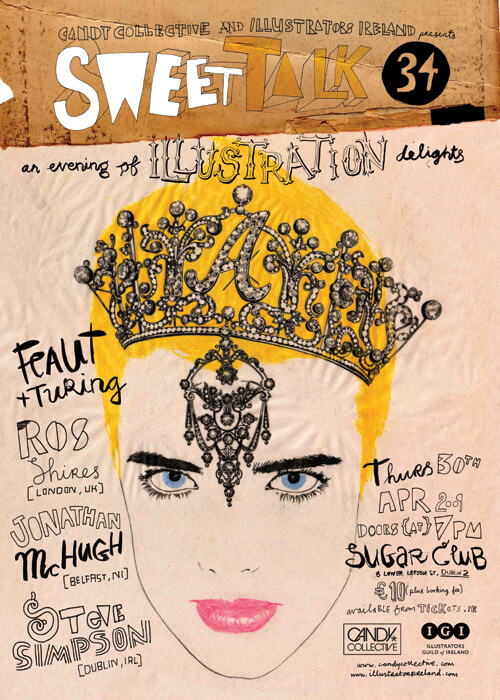 CANDY COLLECTIVE AND ILLUSTRATORS IRELAND presents
SWEET TALK 34
an evening of ILLUSTRATION delights
A
FEAUT
+TURING
ROS
Shires
[LONDON, UK]
JONATHAN
McHUGH
[BELFAST, NI]
STEVE
SIMPSON
[DUBLIN, IRL]
THURS 30TH
APR 2009
DOORS {AT} 7PM
SUGAR CLUB
8 LOWER LEESON ST, DUBLIN 2
€10 (plus booking fee)
available from TICKETS.IE
CANDY
COLLECTIVE
IGI
ILLUSTRATORS
GUILD of IRELAND
www.candycollective.com
www.illustratorsireland.com